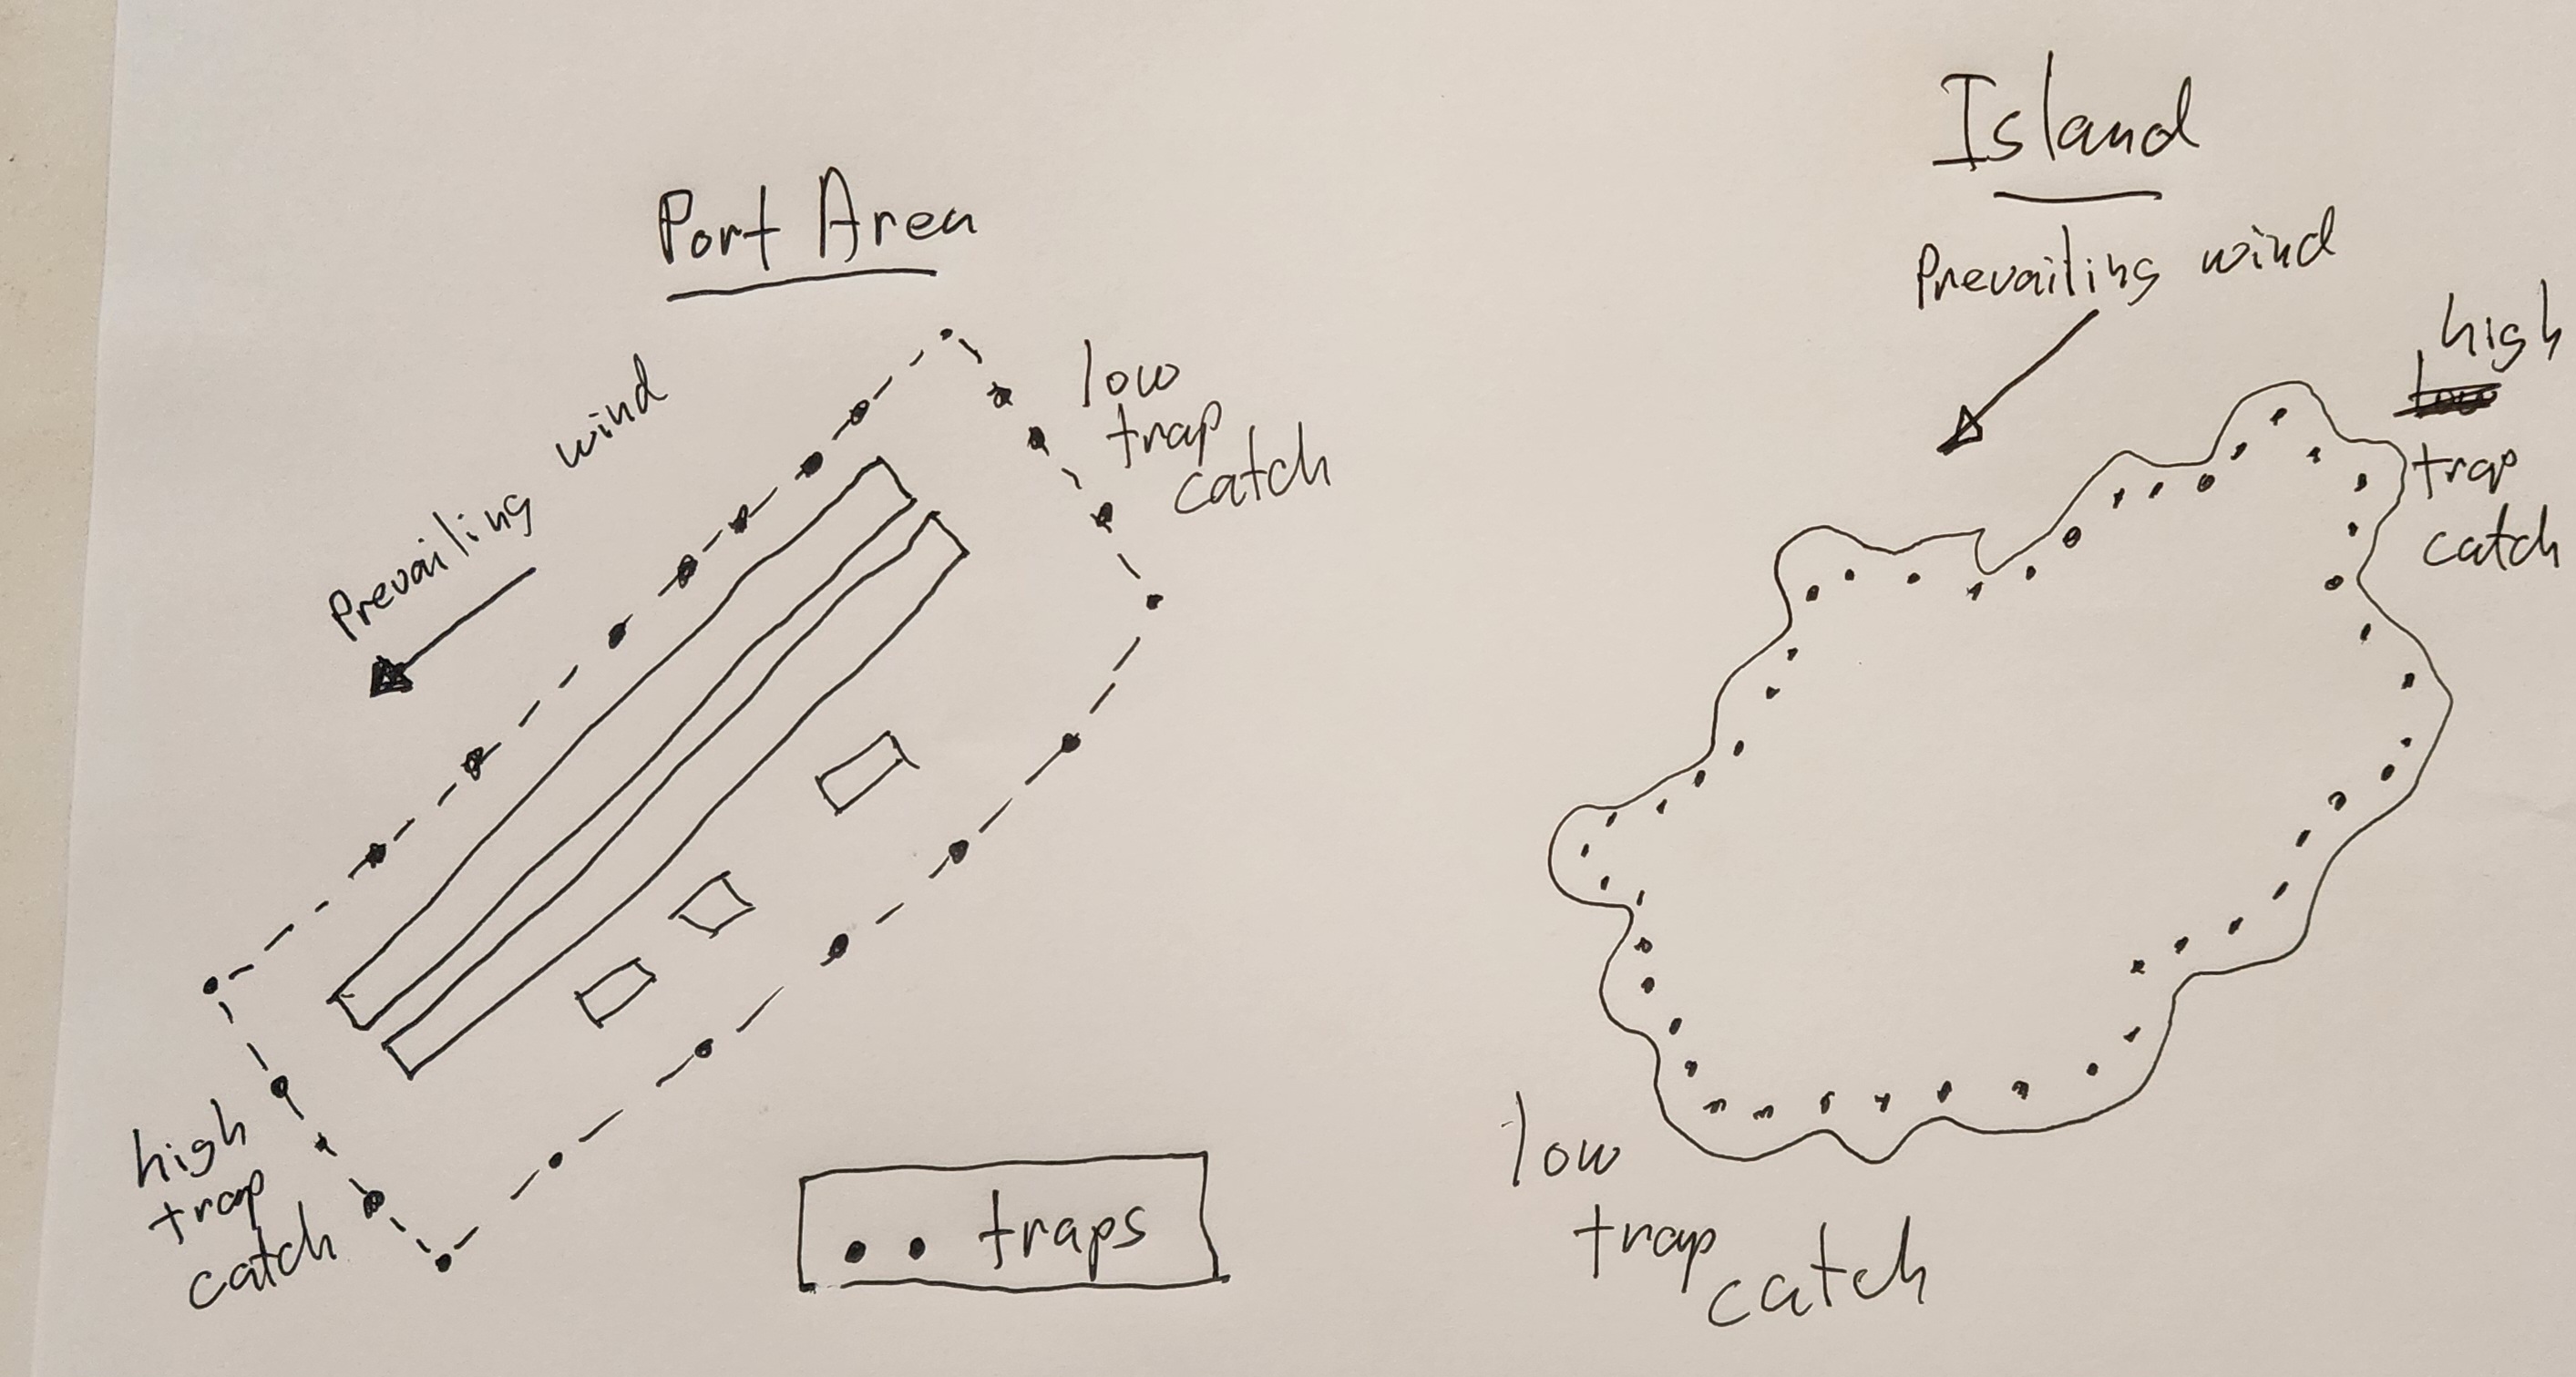 Port Area
Prevailing wind
low
trap
catch
high
trap
catch
traps
Island
Prevailing wind
high
trap
catch
low
trap
catch